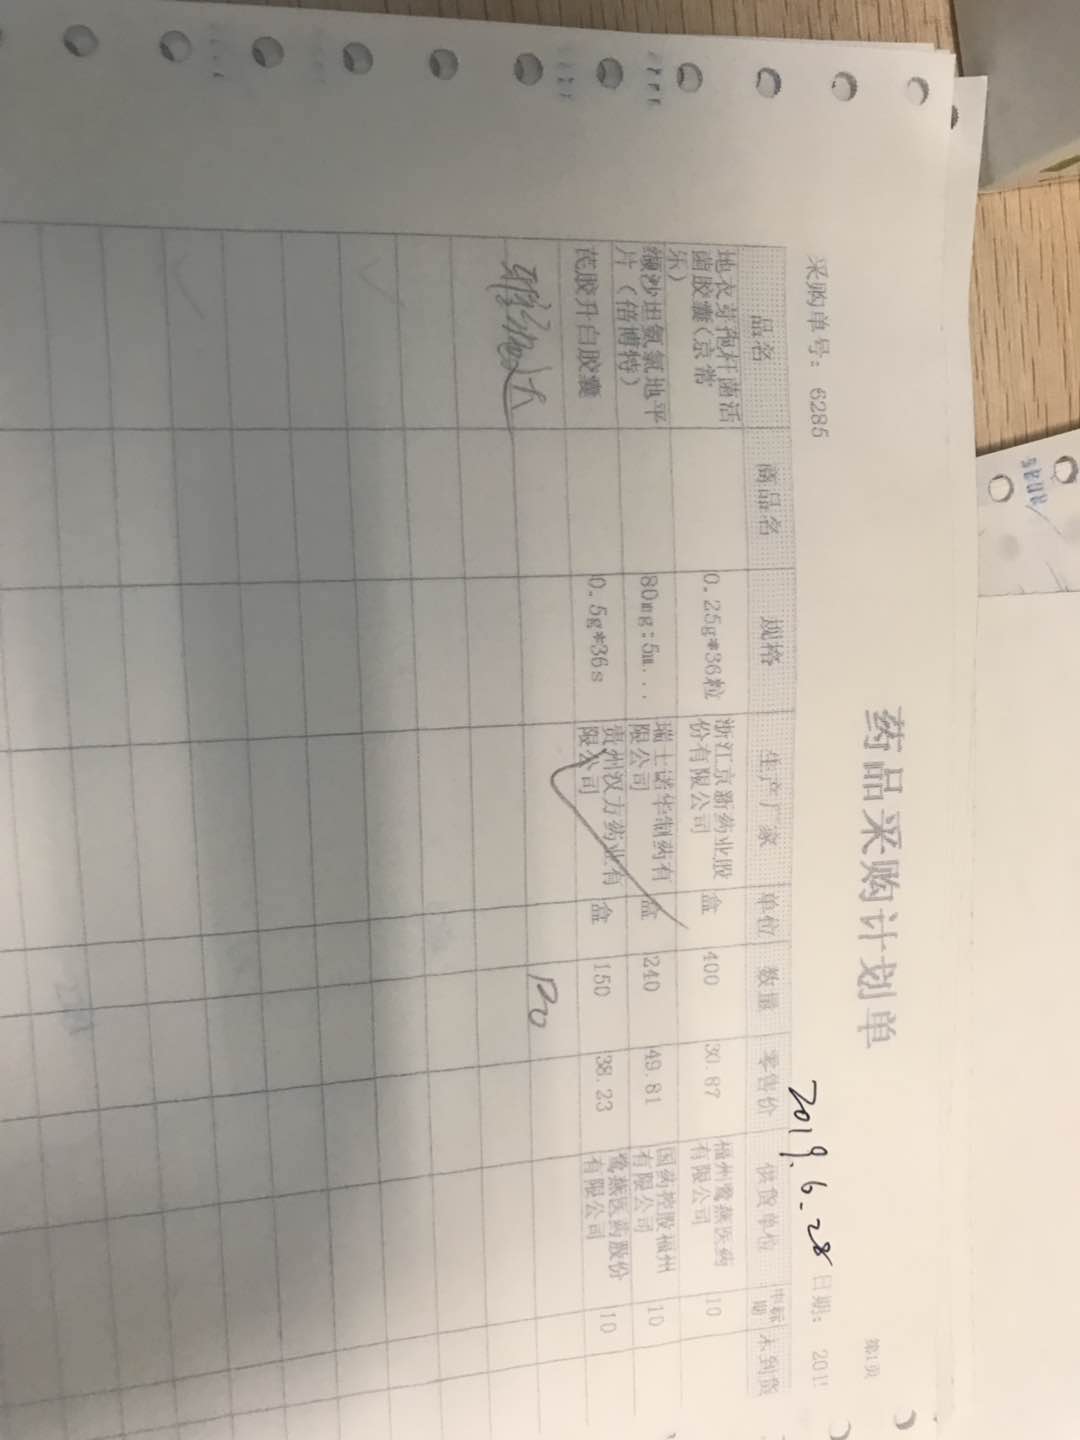 药品采购计划单
第1页
采购单号： 6285
2019.6.28
日期： 201
品名 商品名 规格 生产厂家 单位 数量 零售价 供货单位 中标期 未到货
地衣芽孢杆菌活 0.25g*36粒 浙江京新药业股 盒 400 30.87 福州鹭燕医药 10
菌胶囊(京常 份有限公司 有限公司
乐)
缬沙坦氨氯地平 80mg:5m... 瑞士诺华制药有 盒 240 49.81 国药控股福州 10
片（倍博特） 限公司 有限公司
芪胶升白胶囊 0.5g*36s 贵州汉方药业有 盒 150 38.23 鹭燕医药股份 10
限公司 有限公司